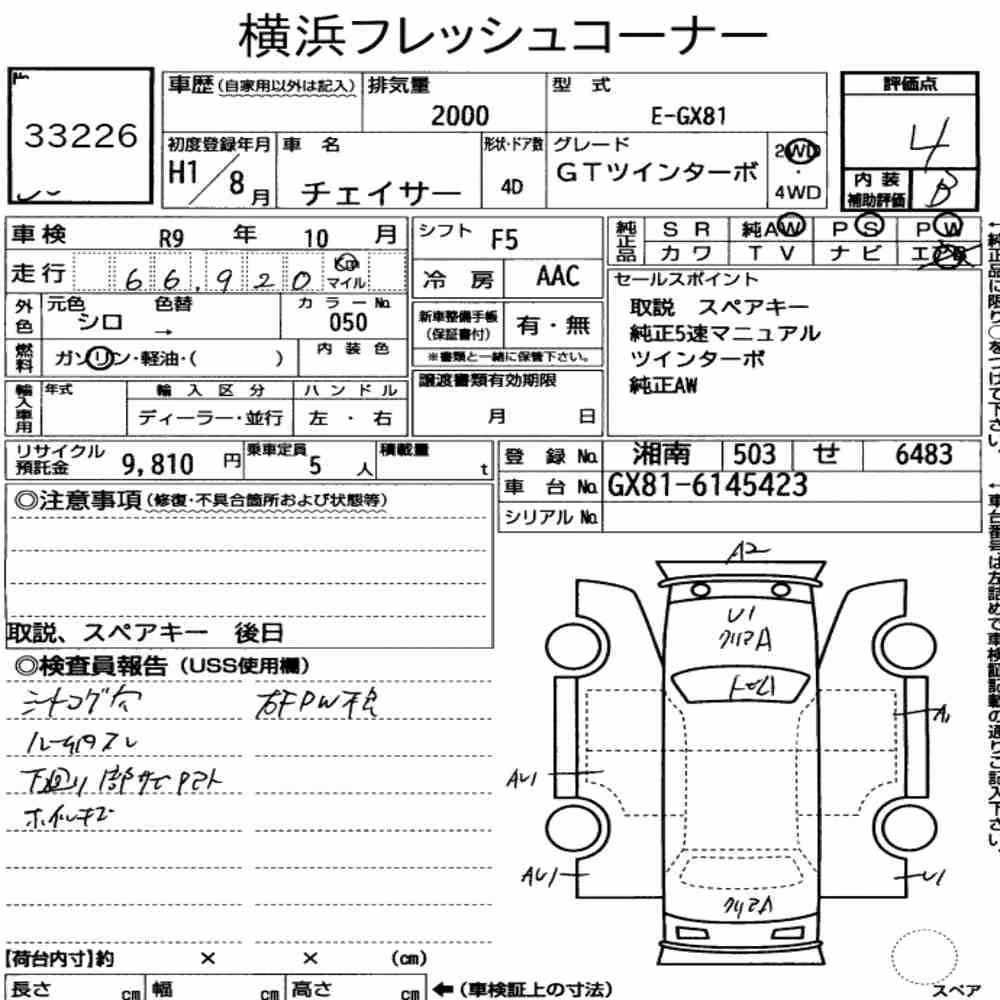 横浜フレッシュコーナー
No
33226
車歴 (自家用以外は記入) 排気量 型 式 評価点
2000 E-GX81 4
初度登録年月 車 名 形状・ドア数 グレード 2WD
H1/8月 チェイサー 4D GTツインターボ ・ 4WD
内 装 補助評価 B
車検 R9 年 10 月 シフト F5 純正品 SR 純AW PS PW
カワ TV ナビ
走行 66,920 Km マイル 冷 房 AAC
セールスポイント
外色 元色 シロ 色替 → カラーNo. 050
新車整備手帳 (保証書付) 有・無
※書類と一緒に保管下さい。
取説 スペアキー
純正5速マニュアル
ツインターボ
純正AW
燃料 ガソリン・軽油・( ) 内装色
譲渡書類有効期限
月 日
輸入車用 年式 輸入区分 ハンドル
ディーラー・並行 左・右
リサイクル預託金 9,810 円 乗車定員 5 人 積載量 t
登録No. 湘南 503 せ 6483
車台No. GX81-6145423
シリアルNo.
◎注意事項(修復・不具合箇所および状態等)
取説、スペアキー 後日
◎検査員報告(USS使用欄)
シートコゲ穴
ルーム内スレ
下廻り部サビ
ホイルキズ
A2
U1
クリアA
A1
AU1
AU1
U1
クリアA
【荷台内寸】約 × × (cm)
長さ cm 幅 cm 高さ cm ←(車検証上の寸法)
スペア
←純正品に限り○をつけて下さい。
←車台番号は左詰めで車検証記載の通りご記入下さい。